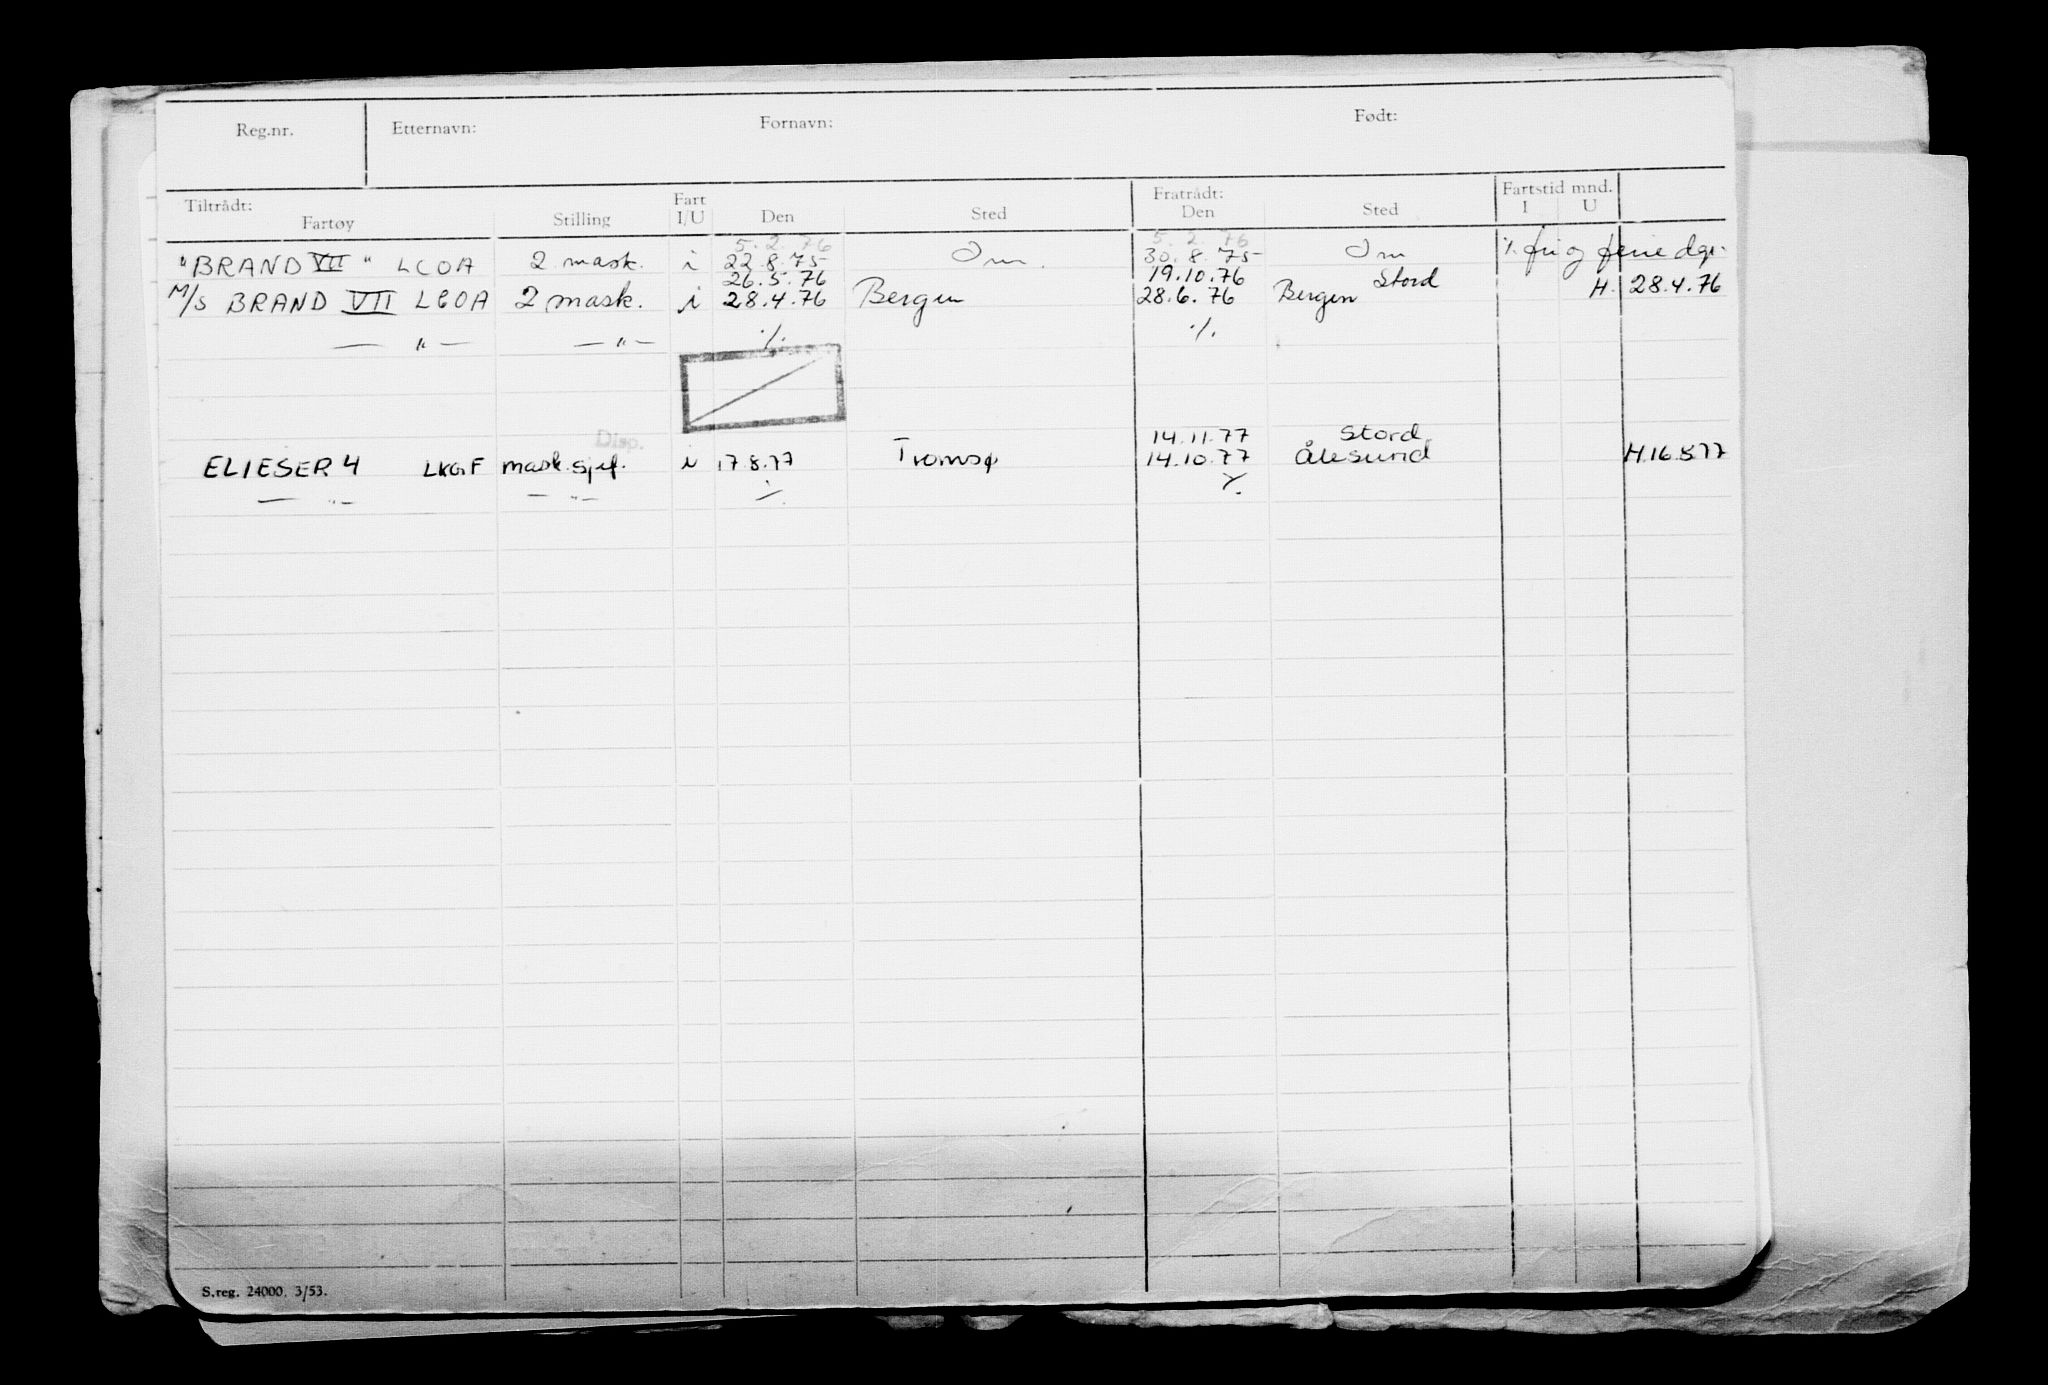 Reg.nr. Etternavn: Fornavn: Født:
Tiltrådt: Fratrådt: Fartstid mnd.
Fartøy Stilling Fart I/U Den Sted Den Sted I U
5.2.76 5.2.76
"BRAND VII" LCOA 2 mask. i 22.8.75 Om 30.8.75 Om ./. fri og feriedgr.
26.5.76 19.10.76 Stord
M/S BRAND VII LCOA 2 mask. i 28.4.76 Bergen 28.6.76 Bergen H. 28.4.76
— " — — " — ./. ./.
Disp. 14.11.77 Stord
ELIESER 4 LKGF mask.sjef. i 17.8.77 Tromsø 14.10.77 Ålesund H.16.8.77
— " — — " — ./. ./.
S.reg. 24000. 3/53.